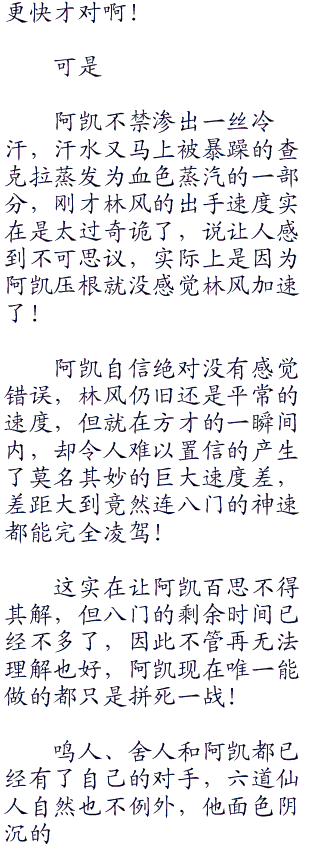 更快才对啊！
可是
阿凯不禁渗出一丝冷
汗，汗水又马上被暴躁的查
克拉蒸发为血色蒸汽的一部
分，刚才林风的出手速度实
在是太过奇诡了，说让人感
到不可思议，实际上是因为
阿凯压根就没感觉林风加速
了！
阿凯自信绝对没有感觉
错误，林风仍旧还是平常的
速度，但就在方才的一瞬间
内，却令人难以置信的产生
了莫名其妙的巨大速度差，
差距大到竟然连八门的神速
都能完全凌驾！
这实在让阿凯百思不得
其解，但八门的剩余时间已
经不多了，因此不管再无法
理解也好，阿凯现在唯一能
做的都只是拼死一战！
鸣人、舍人和阿凯都已
经有了自己的对手，六道仙
人自然也不例外，他面色阴
沉的